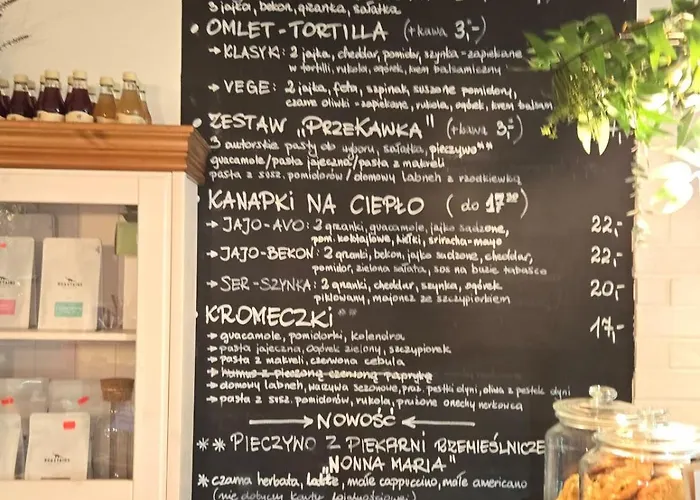 3 jajka, bekon, grzanka, sałatka
• OMLET-TORTILLA (+kawa 3,-)
→ KLASYK: 2 jajka, cheddar, pomidor, szynka - zapiekane
w tortilli, rukola, ogórek, krem balsamiczny
→ VEGE: 2 jajka, feta, szpinak, suszone pomidory,
czarne oliwki - zapiekane, rukola, ogórek, krem balsam
• ZESTAW "PRZEKAWKA" (+kawa 3,-)
3 autorskie pasty do wyboru, sałatka, pieczywo**
guacamole/pasta jajeczna/pasta z makreli
pasta z susz. pomidorów/domowy labneh z rzodkiewką
• KANAPKI NA CIEPŁO (do 17:00)
→ JAJO-AVO: 2 grzanki, guacamole, jajko sadzone, 22,-
pom. koktajlowe, kiełki, sriracha-mayo
→ JAJO-BEKON: 2 grzanki, bekon, jajko sadzone, cheddar, 22,-
pomidor, zielona sałata, sos na bazie tabasco
→ SER-SZYNKA: 2 grzanki, cheddar, szynka, ogórek 20,-
piklowany, majonez ze szczypiorkiem
• KROMECZKI** 17,-
→ guacamole, pomidorki, kolendra
→ pasta jajeczna, ogórek zielony, szczypiorek
→ pasta z makreli, czerwona cebula
→ humus z pieczoną czerwoną papryką
→ domowy labneh, warzywa sezonowe, praż. pestki dyni, oliwa z pestek dyni
→ pasta z susz. pomidorów, rukola, prażone orzechy nerkowca
→ NOWOŚĆ ←
** PIECZYWO Z PIEKARNI RZEMIEŚLNICZEJ
"NONNA MARIA"
* czarna herbata, latte, małe cappuccino, małe americano
(nie dotyczy karty lojalnościowej)